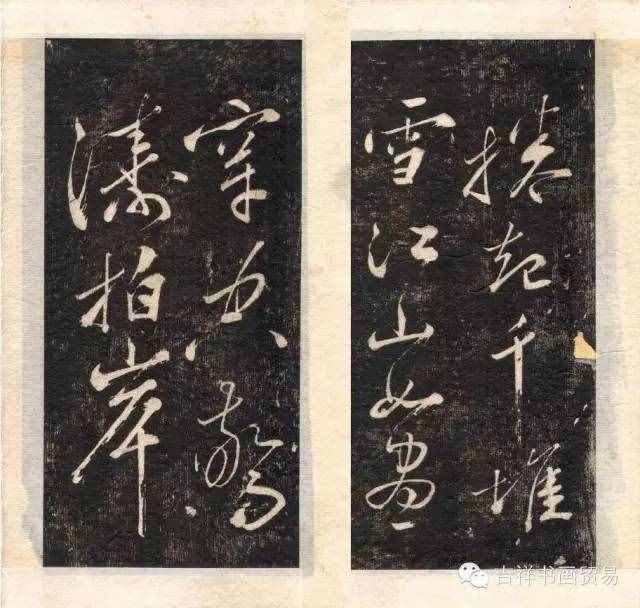 穿空驚
濤拍岸
捲起千堆
雪江山如畫
吉祥书画贸易